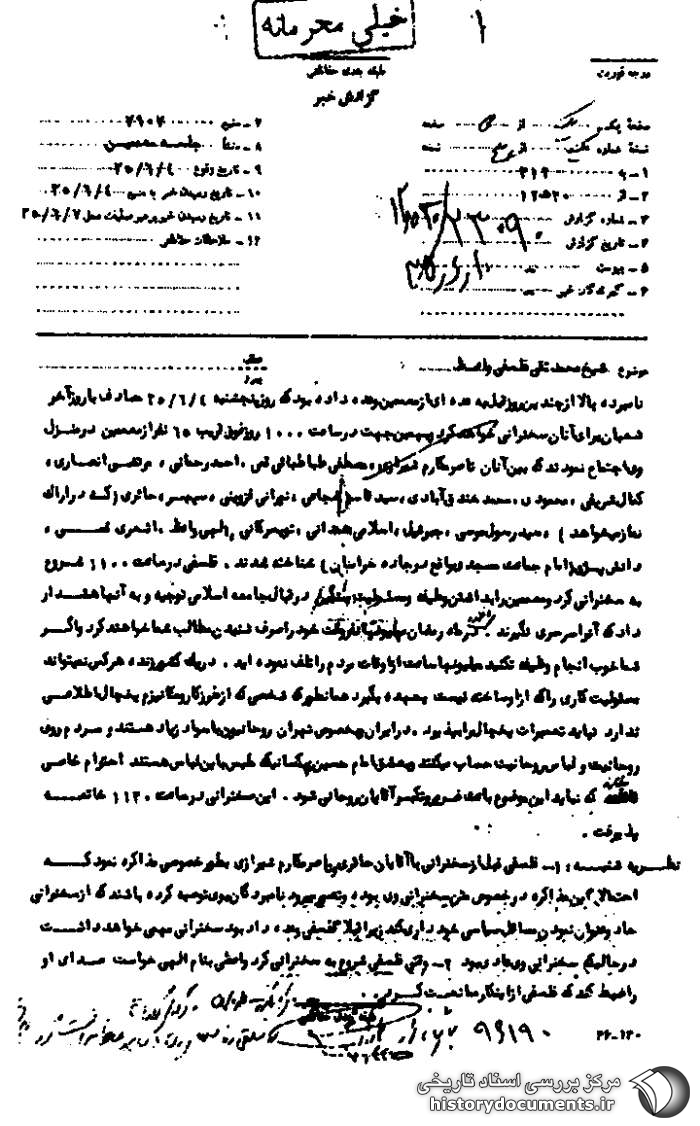 ۱
خیلی محرمانه
طبقه بندی حفاظتی
درجه فوریت
گزارش خبر
صفحه یک از صفحه
نسخه شماره از نسخه
۱ـ به ۳۱۲
۲ـ از ۲۰ ه ۱۲
۳ـ شماره گزارش
۴ـ تاریخ گزارش
۵ـ پیوست
۶ـ گیرندگان خبر
۷ـ منبع ۲۹۰۷
۸ـ منشأ جلسه معممین
۹ـ تاریخ وقوع ۲۵/۶/۴
۱۰ـ تاریخ رسیدن خبر به منبع ۲۵/۶/۴
۱۱ـ تاریخ رسیدن خبر به رهبر عملیات محل ۲۵/۶/۷
۱۲ـ ملاحظات حفاظتی
موضوع شیخ محمد تقی فلسفی واعظ
نامبرده بالا از چندین روز قبل به عده ای از معممین وعده داده بود که روز پنجشنبه ۲۵/۶/۴ مصادف با روز آخر
شعبان برای آنان سخنرانی خواهد کرد بهمین جهت در ساعت ۱۰۰۰ روز فوق قریب ۶۵ نفر از معممین در منزل
وی اجتماع نمودند که بین آنان ناصر مکارم شیرازی، مصطفی طباطبائی قمی، احمد رحمانی، مرتضی انصاری،
کمال شریفی، محمودی، محمد خندق آبادی، سید قاسم شجاعی، تهرانی قزوینی، سپهر، حائری (که در اراک
نماز میخواهد)، سید رسول موسی، جبرئیل، اسلامی همدانی، تویسرکانی، الهی واعظ، اشعری قمی،
دانش پژوه (امام جماعت مسجدی واقع در جاده خراسان) شناخته شدند. فلسفی در ساعت ۱۱۰۰ شروع
به سخنرانی کرد و معممین را به داشتن وظیفه و مسئولیت سنگین در قبال جامعه اسلامی توجیه و به آنها هشدار
داد که آنرا سرسری نگیرند در ماه رمضان میلیونها نفر وقت خود را صرف شنیدن مطالب شما خواهند کرد و اگر
شما خوب انجام وظیفه نکنید میلیونها ساعت از اوقات مردم را تلف نموده اید. در یک کشور زنده، هرکس نمیتواند
مسئولیت کاری را که از او ساخته نیست بعهده بگیرد همانطور که شخصی که از طرز کار و مکانیزم یخچال اطلاعی
ندارد نباید تعمیرات یخچال را بپذیرد. در ایران بخصوص تهران روحانیون با سواد زیاد هستند و مردم روی
روحانیت و لباس روحانیت حساب میکنند و بعشق امام حسین بکسانیکه ملبس باین لباس هستند احترام خاصی
قائلند که نباید این موضوع باعث غرور و تکبر آقایان روحانی شود. این سخنرانی در ساعت ۱۱۲۰ خاتمه
پذیرفت.
نظریه شنبه: ۱ـ فلسفی قبل از سخنرانی با آقایان حائری و ناصر مکارم شیرازی بطور خصوصی مذاکره نمود که
احتمالاً این مذاکره در خصوص متن سخنرانی وی بود، و تصور میرود نامبردگان بوی توصیه کرده باشند که از سخنرانی
حاد و عنوان نمودن مسائل سیاسی خودداری کند زیرا قبلاً فلسفی وعده داده بود سخنرانی مهمی خواهد داشت
در حالیکه سخنرانی وی عادی بود ۲ـ وقتی فلسفی شروع به سخنرانی کرد واعظی بنام الهی خواست صدای او
را ضبط کند که فلسفی از اینکار ممانعت کرد.
طبقه بندی حفاظتی
۹۶۱۹۰
۲۶ـ۱۲۰
مرکز بررسی اسناد تاریخی
historydocuments.ir